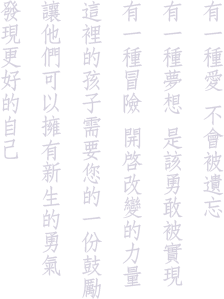 有一種愛 不會被遺忘
有一種夢想 是該勇敢被實現
有一種冒險 開啓改變的力量
這裡的孩子需要您的一份鼓勵
讓他們可以擁有新生的勇氣
發現更好的自己